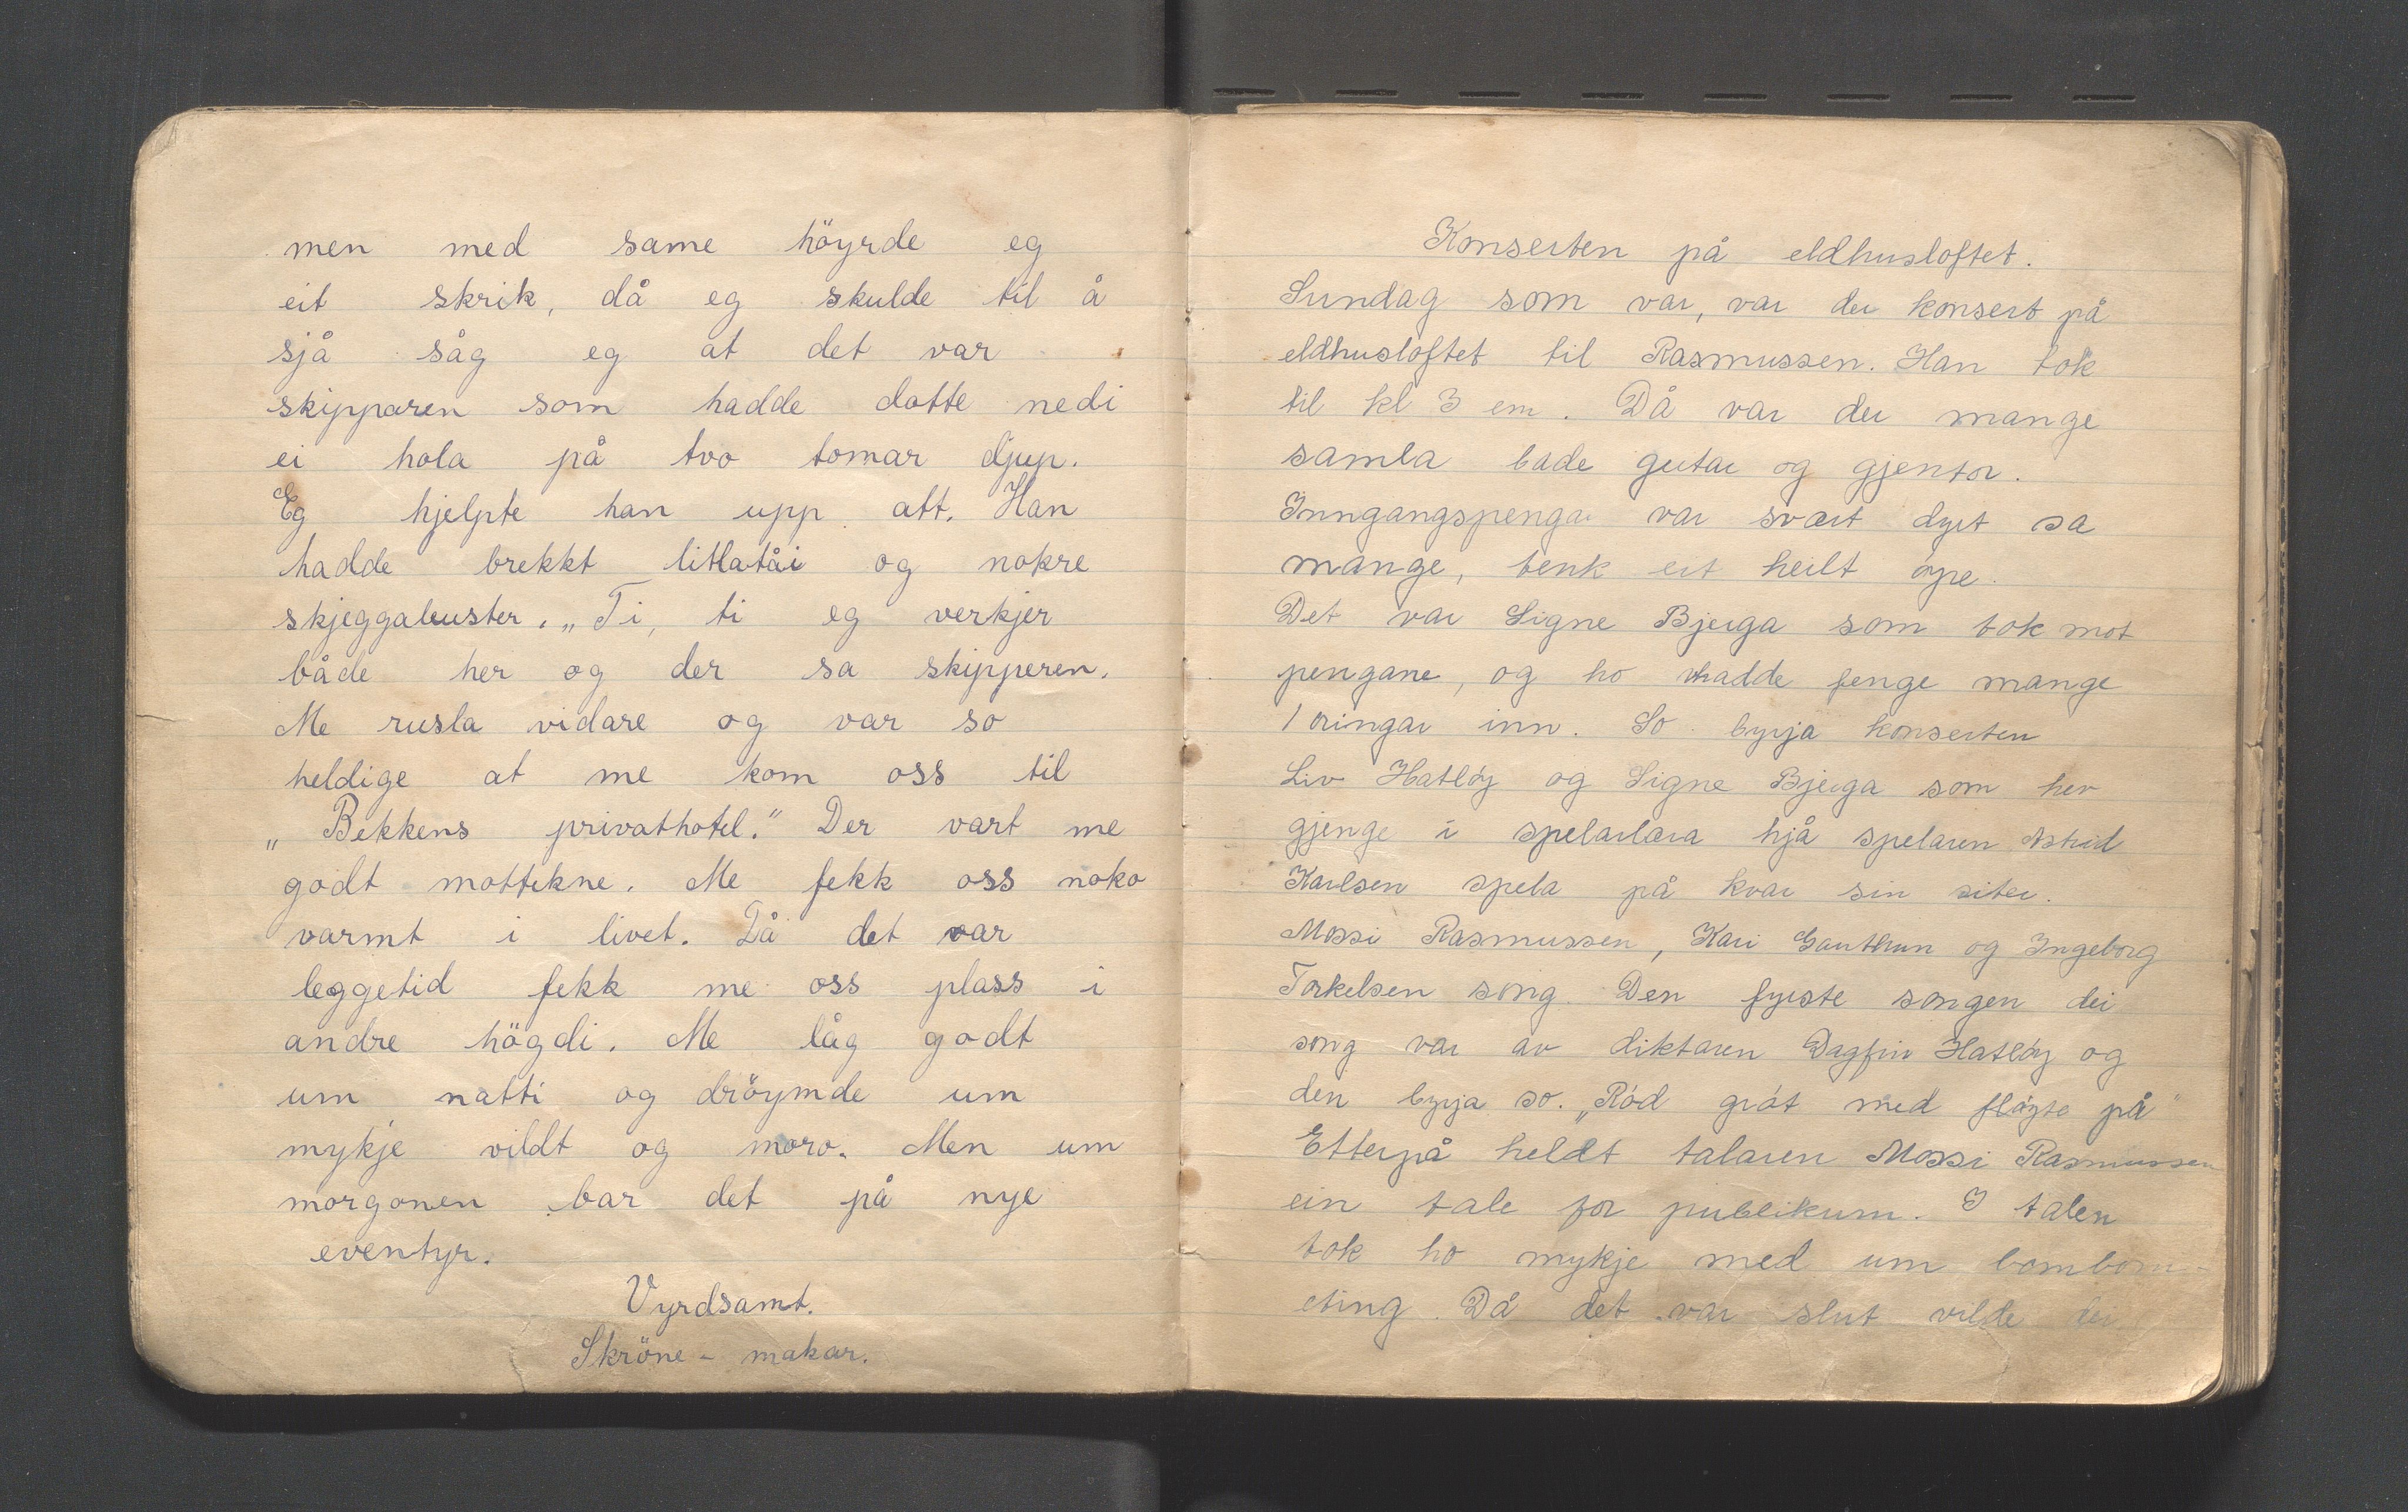 men med same höyrde eg
eit skrik, då eg skulde til å
sjå såg eg at det var
skipparen som hadde dotte nedi
ei hola på tvo tomar djup.
Eg hjelpte han upp att. Han
hadde brekkt litlatåi og nokre
skjeggabuster. „Ti, ti eg verkjer
både her og der sa skipperen.
Me rusla vidare og var so
heldige at me kom oss til
„Bekkens privathotel." Der vart me
godt mottekne. Me fekk oss noko
varmt i livet. Då det var
leggetid fekk me oss plass i
andre högdi. Me låg godt
um natti og dröymde um
mykje vildt og moro. Men um
morgonen bar det på nye
eventyr.
Vyrdsamt.
Skröne - makar.
Konserten på eldhusloftet.
Sundag som var, var der konsert på
eldhusloftet til Rasmussen. Han tok
til kl 3 em. Då var der mange
samla bade gutar og gjentor.
Inngangspengar var svært dyrt sa
mange, tenk eit heilt øyre.
Det var Signe Bjerga som tok mot
pengane, og ho hadde fenge mange
1 øringar inn. So byrja konserten
Liv Hatløy og Signe Bjerga som hev
gjenge i spelarlæra hjå spelaren Astrid
Karlsen spela på kvar sin siter.
Mossi Rasmussen, Kari Gauthun og Ingeborg
Torkelsen song. Den fyrste songen dei
song var av diktaren Dagfin Hatløy og
den byrja so. „Rød grøt med fløyte på"
Etterpå heldt talaren Mossi Rasmussen
ein tale for publikum. I talen
tok ho mykje med um bombom-
eting. Då det var slut vilde dei